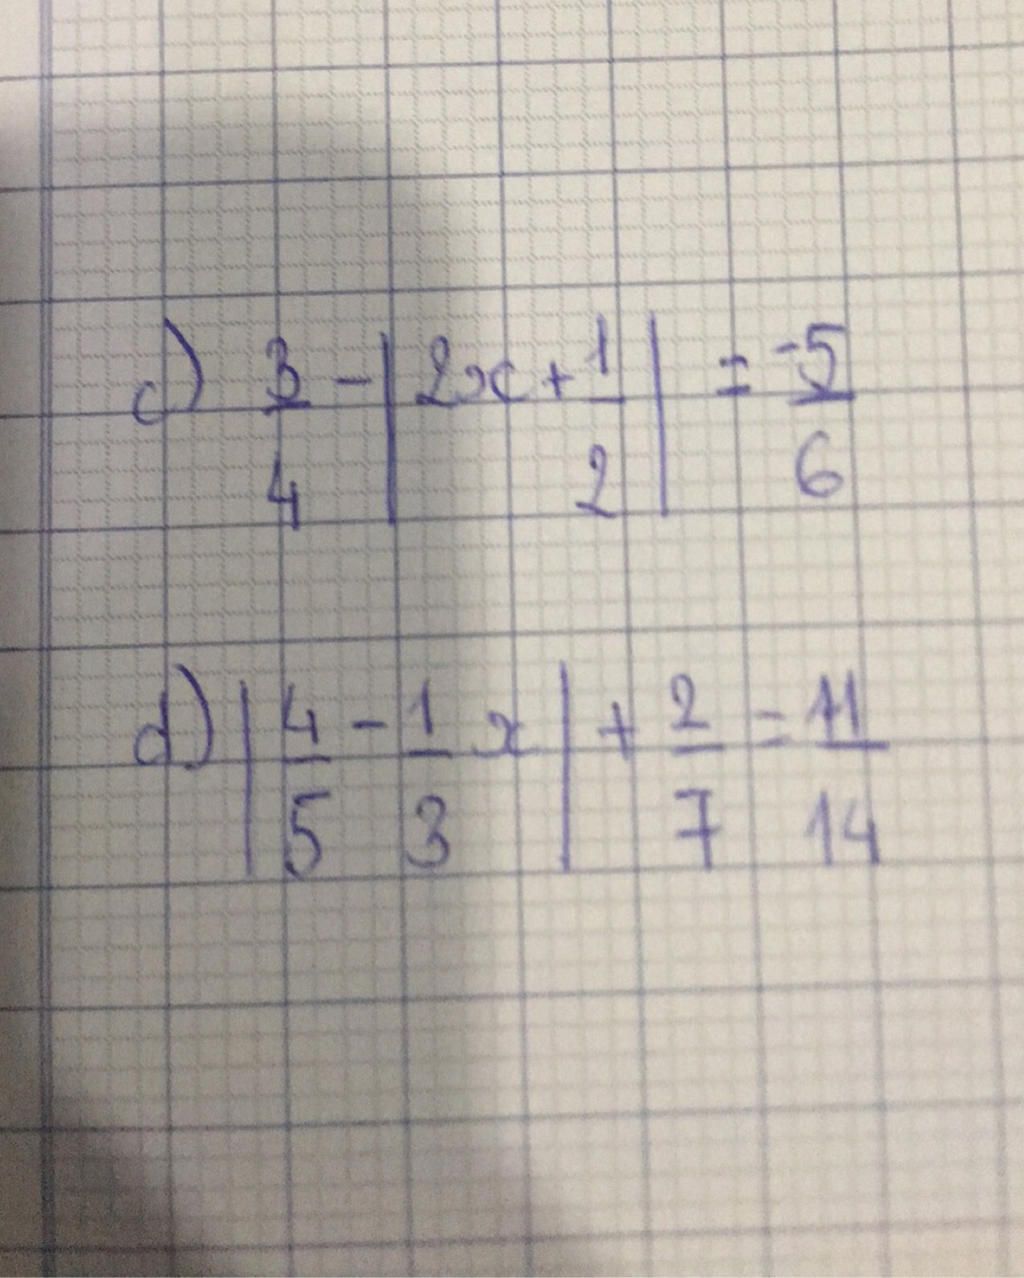 c) 3/4 - |2x + 1/2| = -5/6
d) |4/5 - 1/3 x| + 2/7 = 11/14